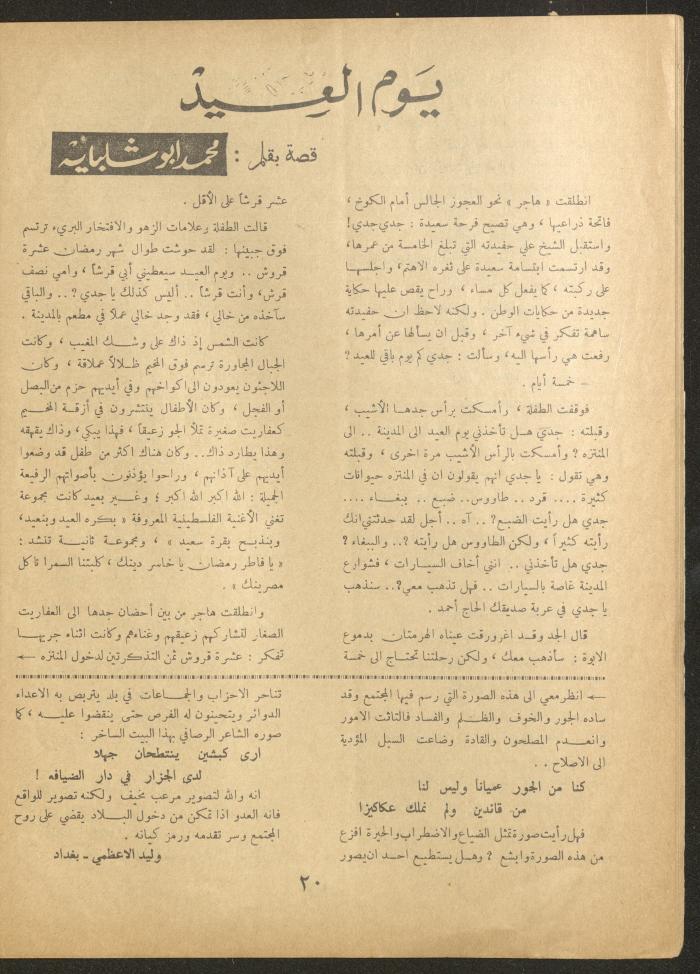 يوم العيد
قصة بقلم : محمد ابو شلباية
انطلقت « هاجر » نحو العجوز الجالس أمام الكوخ ،
فاتحة ذراعيها ، وهي تصيح فرحة سعيدة : جدي جدي !
واستقبل الشيخ على حفيدته التي تبلغ الخامسة من عمرها ،
وقد ارتسمت ابتسامة سعيدة على ثغره الاهتم ، واجلسها
على ركبته ، كما يفعل كل مساء ، وراح يقص عليها حكاية
جديدة من حكايات الوطن . ولكنه لاحظ ان حفيدته
ساهمة تفكر في شيء آخر ، وقبل ان يسألها عن أمرها ،
رفعت هي رأسها اليه ، وسألت : جدي كم يوم باقي للعيد ؟
– خمسة أيام .
فوقفت الطفلة ، وأمسكت برأس جدها الأشيب ،
وقبلته : جدي هل تأخذني يوم العيد الى المدينة .. الى
المنتزه ؟ وأمسكت بالرأس الأشيب مرة اخرى ، وقبلته
وهي تقول : يا جدي انهم يقولون ان في المنتزه حيوانات
كثيرة .... قرد .. طاووس .. ضبع .. ببغاء ....
جدي هل رأيت الضبع ? .. آه .. أجل لقد حدثتني انك
رأيته كثيراً ، ولكن الطاووس هل رأيته ? .. والببغاء ؟
جدي هل تأخذني .. انني أخاف السيارات ، فشوارع
المدينة غاصة بالسيارات .. فهل تذهب معي ? .. سنذهب
يا جدي في عربة صديقك الحاج أحمد .
قال الجد وقد اغرورقت عيناه الهرمتان بدموع
الابوة : سأذهب معك ، ولكن رحلتنا تحتاج الى خمسة
عشر قرشاً على الأقل .
قالت الطفلة وعلامات الزهو والافتخار البريء ترتسم
فوق جبينها : لقد حوشت طوال شهر رمضان عشرة
قروش .. ويوم العيد سيعطيني أبي قرشاً ، وامي نصف
قرش ، وأنت قرشاً .. أليس كذلك يا جدي ? .. والباقي
سآخذه من خالي ، فقد وجد خالي عملاً في مطعم بالمدينة .
كانت الشمس إذ ذاك على وشك المغيب ، وكانت
الجبال المجاورة ترسم فوق المخيم ظلالاً عملاقة ، وكان
اللاجئون يعودون الى اكواخهم وفي أيديهم حزم من البصل
أو الفجل ، وكان الأطفال ينتشرون في أزقة المخيم
كعفاريت صغيرة تملأ الجو زعيقاً ، فهذا يبكي ، وذاك يقهقه
وهذا يطارد ذاك .. وكان هناك اكثر من طفل قد وضعوا
أيديهم على آذانهم ، وراحوا يؤذنون بأصواتهم الرفيعة
الجميلة : الله اكبر الله اكبر ؛ وغير بعيد كانت مجموعة
تغني الأغنية الفلسطينية المعروفة « بكره العيد وبنعيد ،
وبنذبح بقرة سعيد » ، ومجموعة ثانية تنشد :
« يا فاطر رمضان يا خاسر دينك ، كلبتنا السمرا تاكل
مصرينك » .
وانطلقت هاجر من بين أحضان جدها الى العفاريت
الصغار لتشاركهم زعيقهم وغناءهم وكانت اثناء جريها
تفكر : عشرة قروش ثمن التذكرتين لدخول المنتزه ←
← انظر معي الى هذه الصورة التي رسم فيها المجتمع وقد
ساده الجور والخوف والظلم والفساد فالتاثت الامور
وانعدم المصلحون والقادة وضاعت السبل المؤدية
الى الاصلاح . .
كنا من الجور عمياناً وليس لنا
من قائدين ولم نملك عكاكيزا
فهل رأيت صورة تمثل الضياع والاضطراب والحيرة افزع
من هذه الصورة وابشع ؟ وهل يستطيع احد ان يصور
تناحر الاحزاب والجماعات في بلد يتربص به الاعداء
الدوائر ويتحينون له الفرص حتى ينقضوا عليه ، كما
صوره الشاعر الرصافي بهذا البيت الساخر :
ارى كبشين ينتطحان جهلا
لدى الجزار في دار الضيافه !
انه والله لتصوير مرعب مخيف ولكنه تصوير للواقع
فانه العدو اذا تمكن من دخول البلاد يقضي على روح
المجتمع وسر تقدمه ورمز كيانه .
وليد الاعظمي – بغداد
٢٠